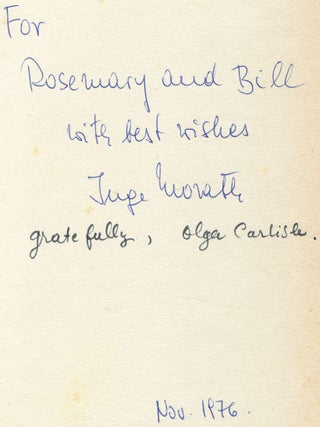 For
Rosemary and Bill
with best wishes
Inge Morath
gratefully, Olga Carlisle.
Nov. 1976.